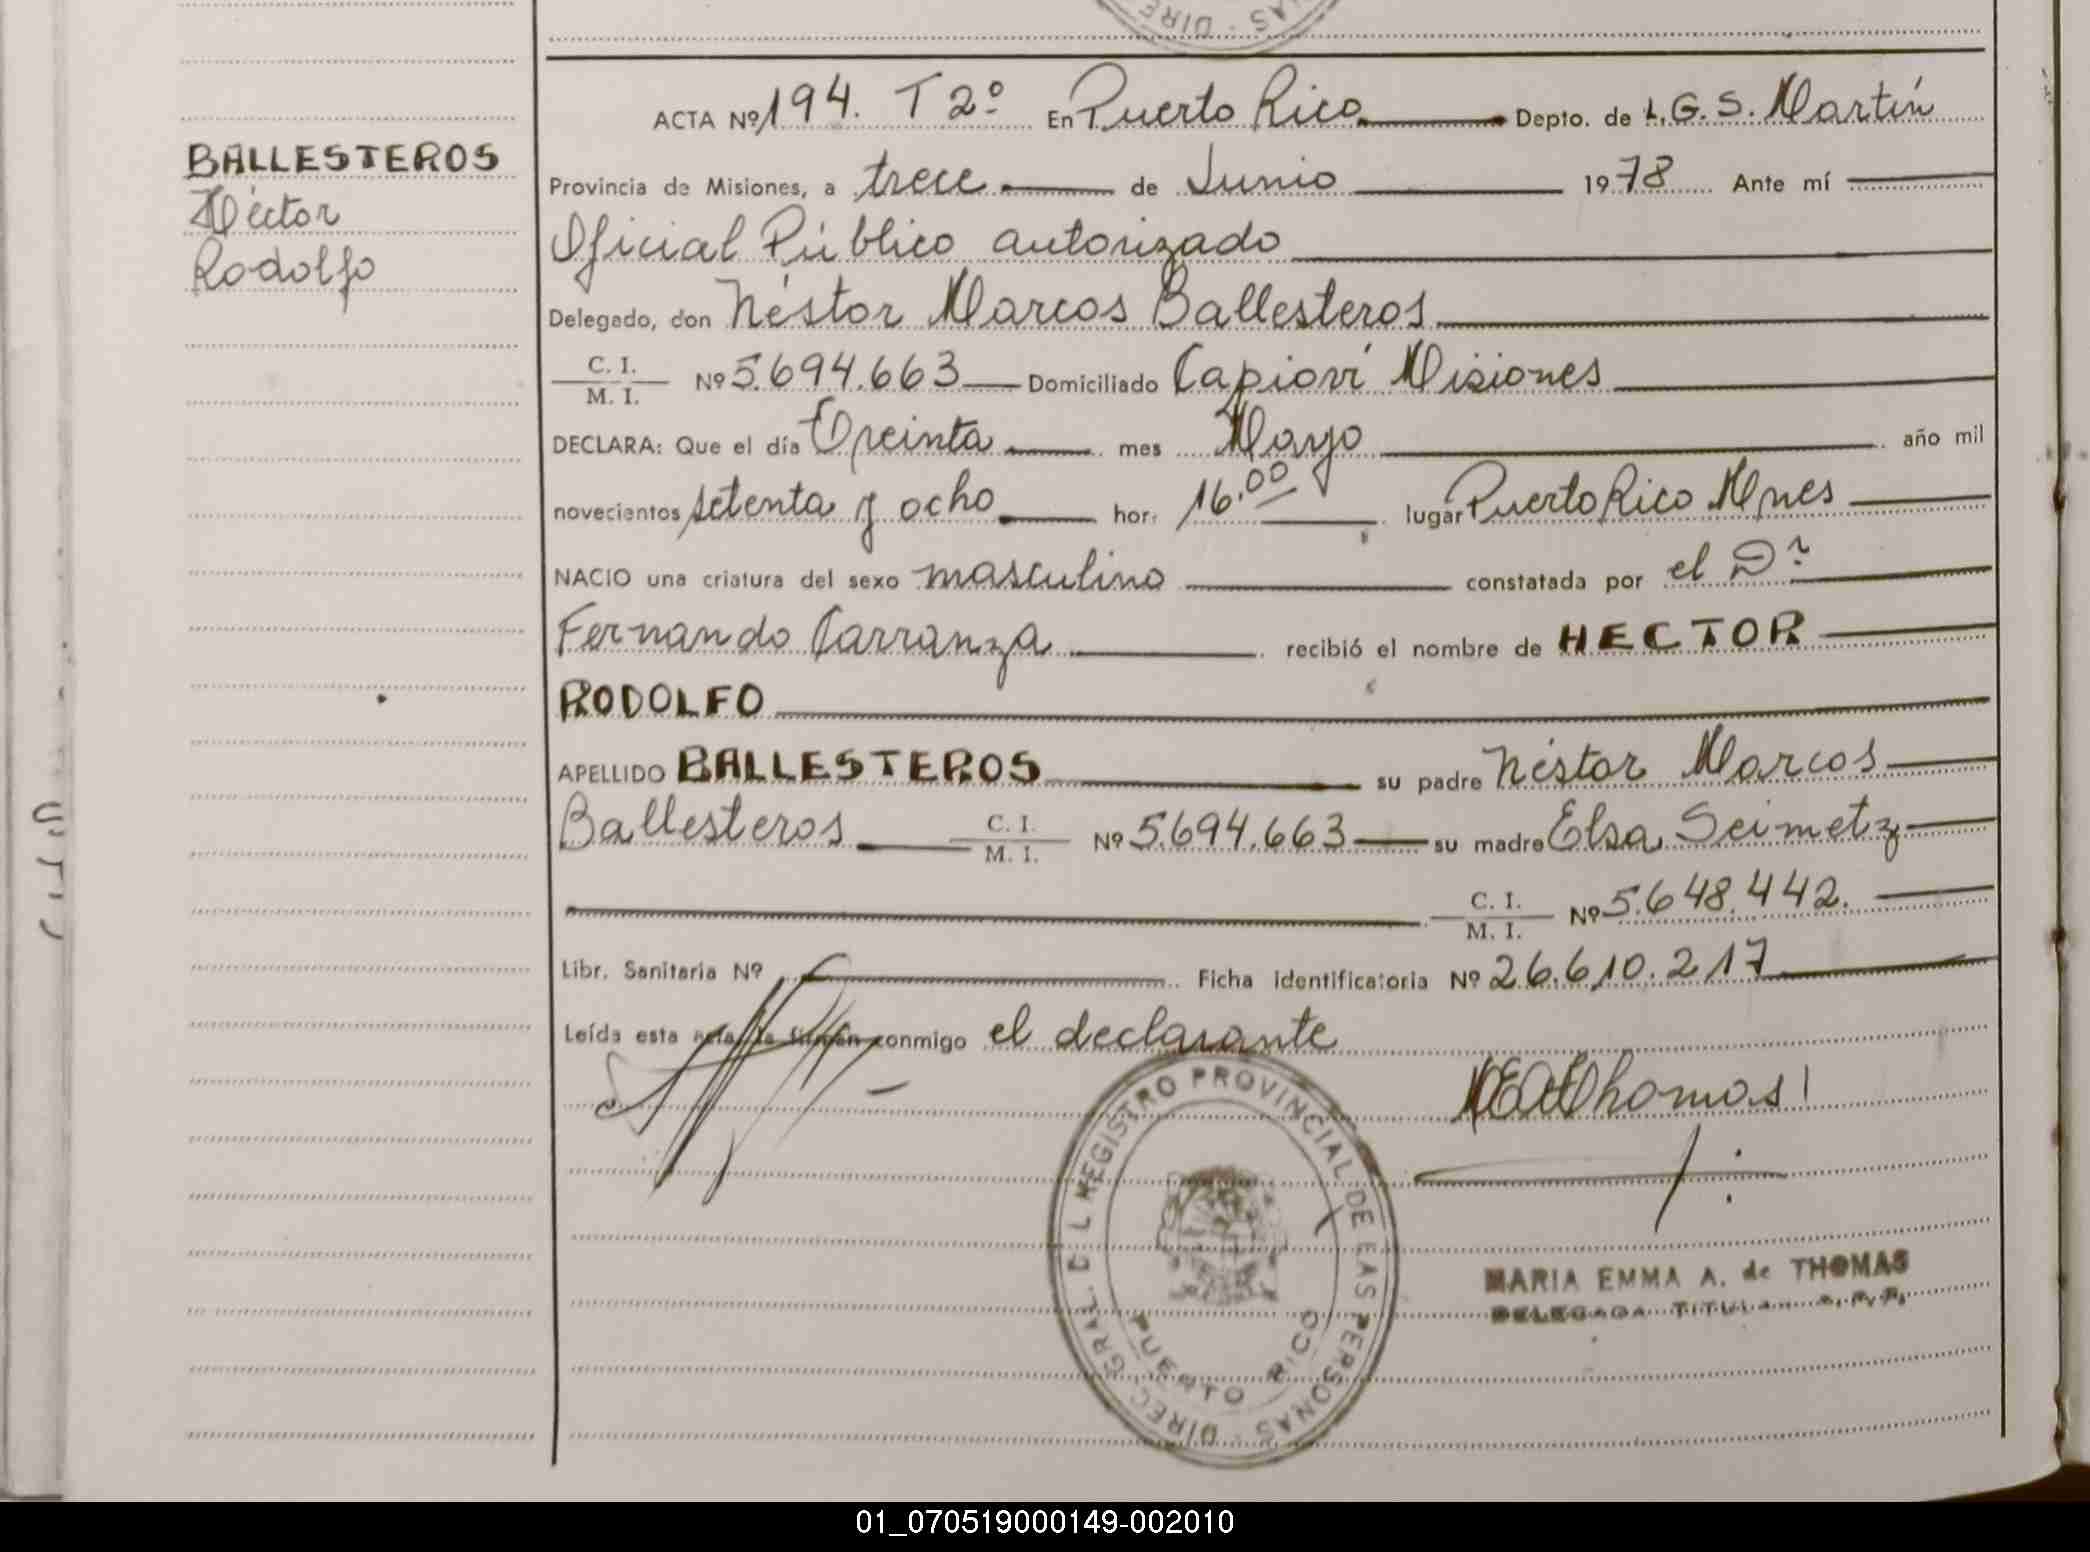 BALLESTEROS
Héctor
Rodolfo
ACTA Nº 194. T 2º En Puerto Rico Depto. de L.G.S. Martín
Provincia de Misiones, a trece de Junio 1978 Ante mí
Oficial Público autorizado
Delegado, don Néstor Marcos Ballesteros
C. I.
M. I. Nº 5.694.663 Domiciliado Capioví Misiones
DECLARA: Que el día Treinta mes Mayo año mil
novecientos setenta y ocho hor. 16.00 lugar Puerto Rico Mnes
NACIO una criatura del sexo masculino constatada por el Dr
Fernando Carranza recibió el nombre de HECTOR
RODOLFO
APELLIDO BALLESTEROS su padre Néstor Marcos
Ballesteros C. I.
M. I. Nº 5.694.663 su madre Elsa Seimetz
C. I.
M. I. Nº 5.648.442.
Libr. Sanitaria Nº Ficha identificatoria Nº 26.610.217
Leída esta acta la firman conmigo el declarante
MEAdeThomas
DIREC. GRAL. DEL REGISTRO PROVINCIAL DE LAS PERSONAS
PUERTO RICO
MARIA EMMA A. de THOMAS
DELEGADA TITULAR R.P.P.
01_070519000149-002010